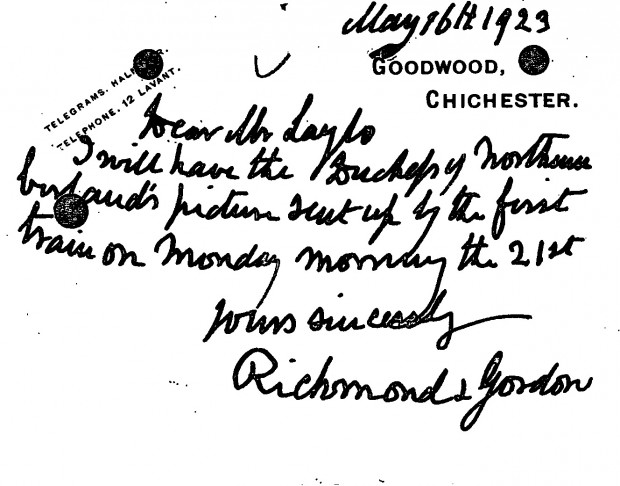 May 16th 1923
TELEGRAMS. HAL
TELEPHONE. 12 LAVANT.
GOODWOOD,
CHICHESTER.
Dear Mr
I will have the Duchess of Northum
berland's picture sent up by the first
train on Monday morning the 21st
Yours sincerely
Richmond & Gordon